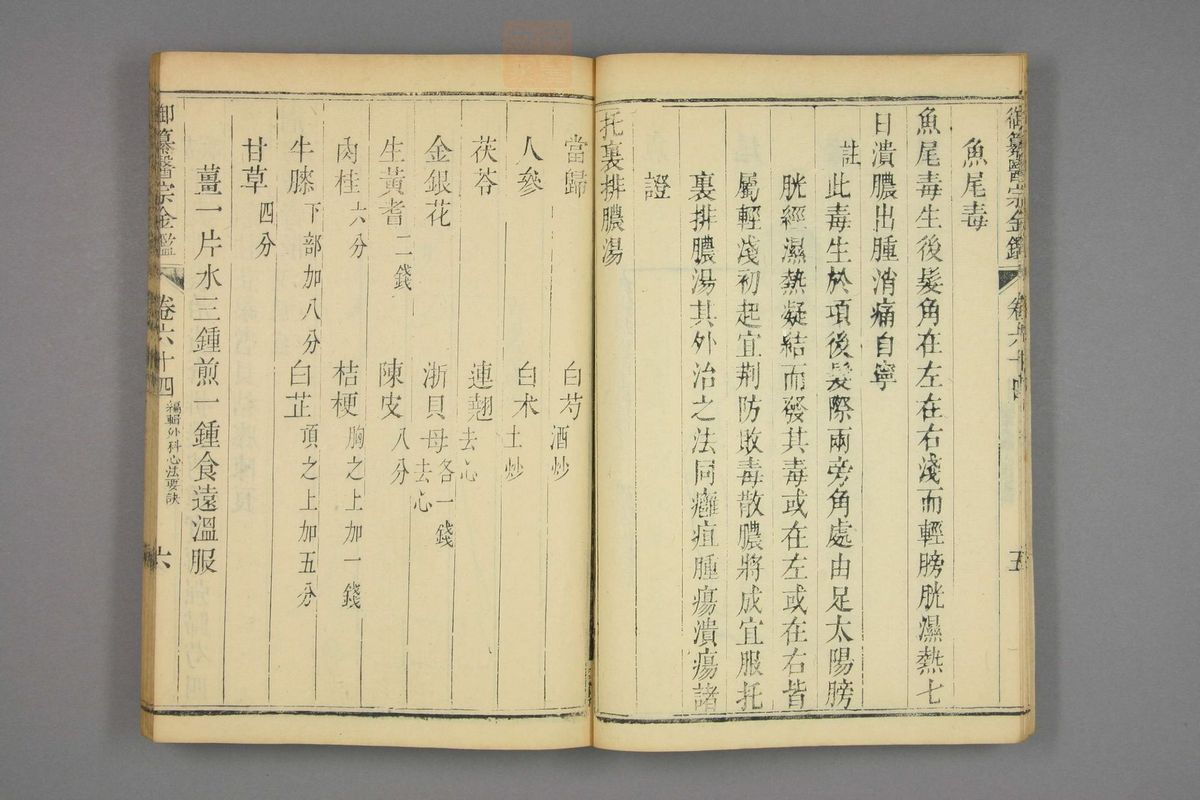 御纂醫宗金鑑 卷六十四 五
魚尾毒
魚尾毒生後髮角在左在右淺而輕膀胱濕熱七
日潰膿出腫消痛自寧
註 此毒生於項後髮際兩旁角處由足太陽膀
胱經濕熱凝結而發其毒或在左或在右皆
屬輕淺初起宜荆防敗毒散膿將成宜服托
裏排膿湯其外治之法同癰疽腫瘍潰瘍諸
證
托裏排膿湯
當歸 白芍酒炒
人參 白朮土炒
茯苓 連翹去心
金銀花 浙貝母各一錢去心
生黃耆二錢 陳皮八分
肉桂六分 桔梗胸之上加一錢
牛膝下部加八分 白芷頂之上加五分
甘草四分
薑一片水三鍾煎一鍾食遠溫服
御纂醫宗金鑑 卷六十四 編輯外科心法要訣 六